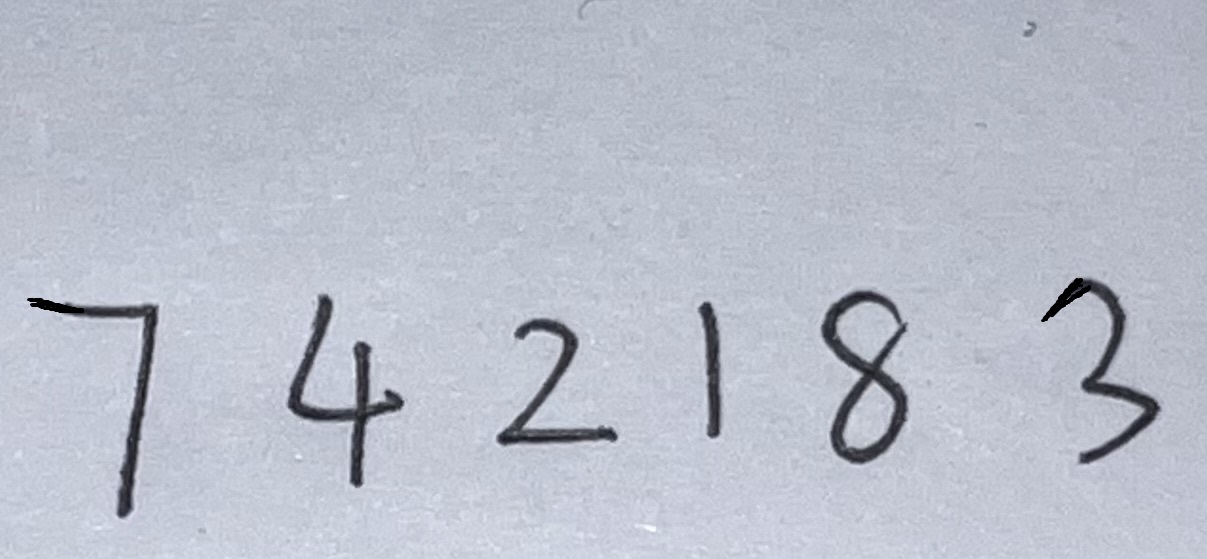 7 4 2 1 8 3